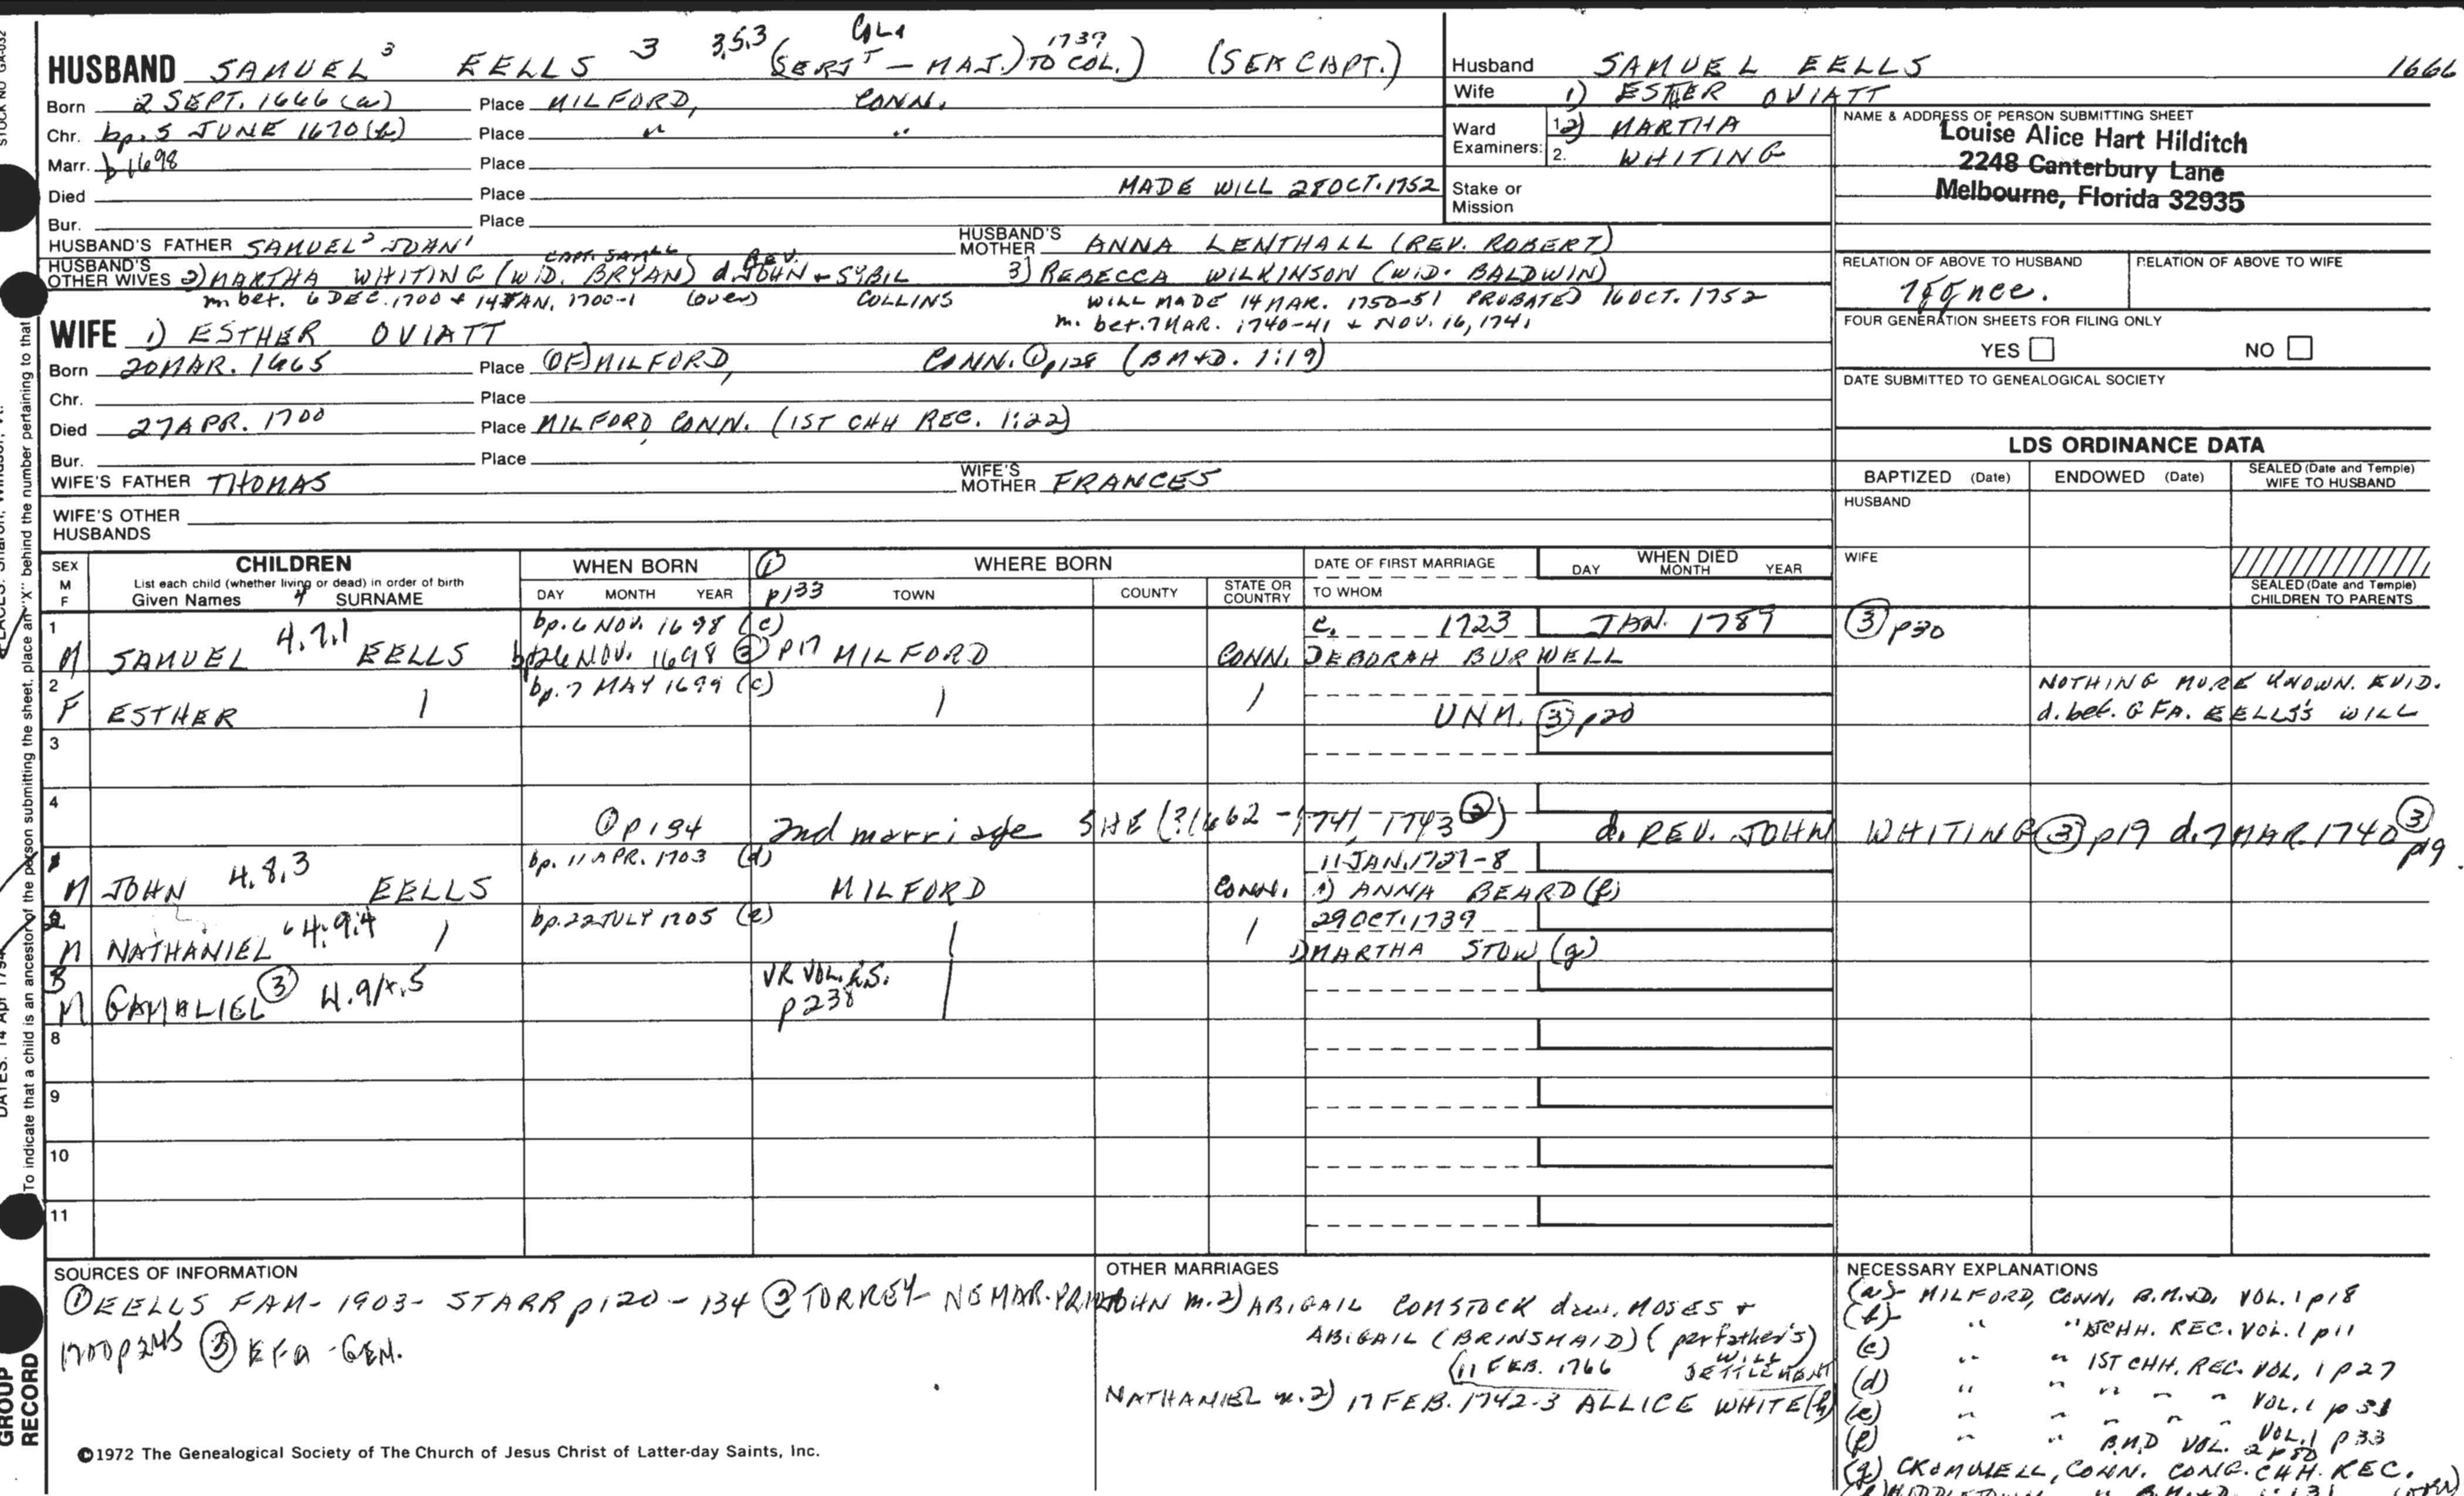 STOCK NO GA-032
HUSBAND SAMUEL 3 EELLS 3 3,5,3 (SERJT - MAJ.) TO COL.) 1737 (SEA CAPT.)
Born 2 SEPT. 1666 (a) Place MILFORD, CONN.
Chr. bp. 5 JUNE 1670 (b) Place " "
Marr. b 1698 Place
Died Place MADE WILL 28 OCT. 1752
Bur. Place
HUSBAND'S FATHER SAMUEL2 JOHN1 HUSBAND'S MOTHER ANNA LENTHALL (REV. ROBERT)
CAPT. SAMLL REV.
HUSBAND'S OTHER WIVES 2) MARTHA WHITING (WID. BRYAN) d. JOHN + SYBIL 3) REBECCA WILKINSON (WID. BALDWIN)
m bet. 6 DEC. 1700 + 14 JAN. 1700-1 (over) COLLINS WILL MADE 14 MAR. 1750-51 PROBATED 16 OCT. 1752
m. bet. 7 MAR. 1740-41 + NOV. 16, 1741
WIFE 1) ESTHER OVIATT
Born 20 MAR. 1665 Place (OF) MILFORD, CONN. ① p128 (B M+D. 1:19)
Chr. Place
Died 27 APR. 1700 Place MILFORD, CONN. (1ST CHH REC. 1:22)
Bur. Place
WIFE'S FATHER THOMAS WIFE'S MOTHER FRANCES
WIFE'S OTHER HUSBANDS
Husband SAMUEL EELLS 1666
Wife 1) ESTHER OVIATT
Ward Examiners: 1. 2) MARTHA
2. WHITING
Stake or Mission
NAME & ADDRESS OF PERSON SUBMITTING SHEET
Louise Alice Hart Hilditch
2248 Canterbury Lane
Melbourne, Florida 32935
RELATION OF ABOVE TO HUSBAND RELATION OF ABOVE TO WIFE
FOUR GENERATION SHEETS FOR FILING ONLY
YES NO
DATE SUBMITTED TO GENEALOGICAL SOCIETY
LDS ORDINANCE DATA
BAPTIZED (Date) ENDOWED (Date) SEALED (Date and Temple) WIFE TO HUSBAND
HUSBAND
WIFE
SEALED (Date and Temple) CHILDREN TO PARENTS
SEX M F CHILDREN WHEN BORN ① WHERE BORN DATE OF FIRST MARRIAGE WHEN DIED
List each child (whether living or dead) in order of birth
Given Names 4 SURNAME DAY MONTH YEAR p133 TOWN COUNTY STATE OR COUNTRY TO WHOM DAY MONTH YEAR
1 bp. 6 NOV. 1698 (c) c. 1723 JAN. 1789 ③ p30
M SAMUEL 4.7.1 EELLS 26 NOV. 1698 ② p17 MILFORD CONN. DEBORAH BURWELL
2 bp. 7 MAY 1699 (c) NOTHING MORE KNOWN. EVID.
F ESTHER UNM. ③ p20 d. bef. GFA. EELLS'S WILL
3
4
① p134 2nd marriage SHE (?1662 - 1741, 1743 ②) d. REV. JOHN WHITING ③ p19 d. 7 MAR. 1740 ③ p19
bp. 11 APR. 1703 (d) 11 JAN. 1727-8
M JOHN 4.8.3 EELLS MILFORD CONN. 1) ANNA BEARD (f)
2 bp. 22 JULY 1705 (e) 29 OCT. 1739
M NATHANIEL 4.9.4 1) MARTHA STOW (g)
3
M GAMALIEL ③ 4.9/x.5 VR VOL.
p238
8
9
10
11
SOURCES OF INFORMATION
① EELLS FAM - 1903 - STARR p120-134 ② TORREY - NE MAR. PRIOR
1700 p245 ③ EFA - GEN.
©1972 The Genealogical Society of The Church of Jesus Christ of Latter-day Saints, Inc.
OTHER MARRIAGES
JOHN m. 2) ABIGAIL COMSTOCK dau. MOSES +
ABIGAIL (BRINSMAID) (per father's
(11 FEB. 1766 WILL SETTLEMENT
NATHANIEL m. 2) 17 FEB. 1742-3 ALLICE WHITE (h)
NECESSARY EXPLANATIONS
(a) - MILFORD, CONN. B.M.+D. VOL. 1 p18
(b) - " " 1ST CHH. REC. VOL. 1 p11
(c) " " 1ST CHH. REC. VOL. 1 p27
(d) " " " " " VOL. 1 p31
(e) " " " " " VOL. 1 p33
(f) " " B.M.D VOL. 2 p80
(g) CROMWELL, CONN. CONG. CHH. REC.
To indicate that a child is an ancestor of the person submitting the sheet, place an "X" behind the number pertaining to that
GROUP RECORD